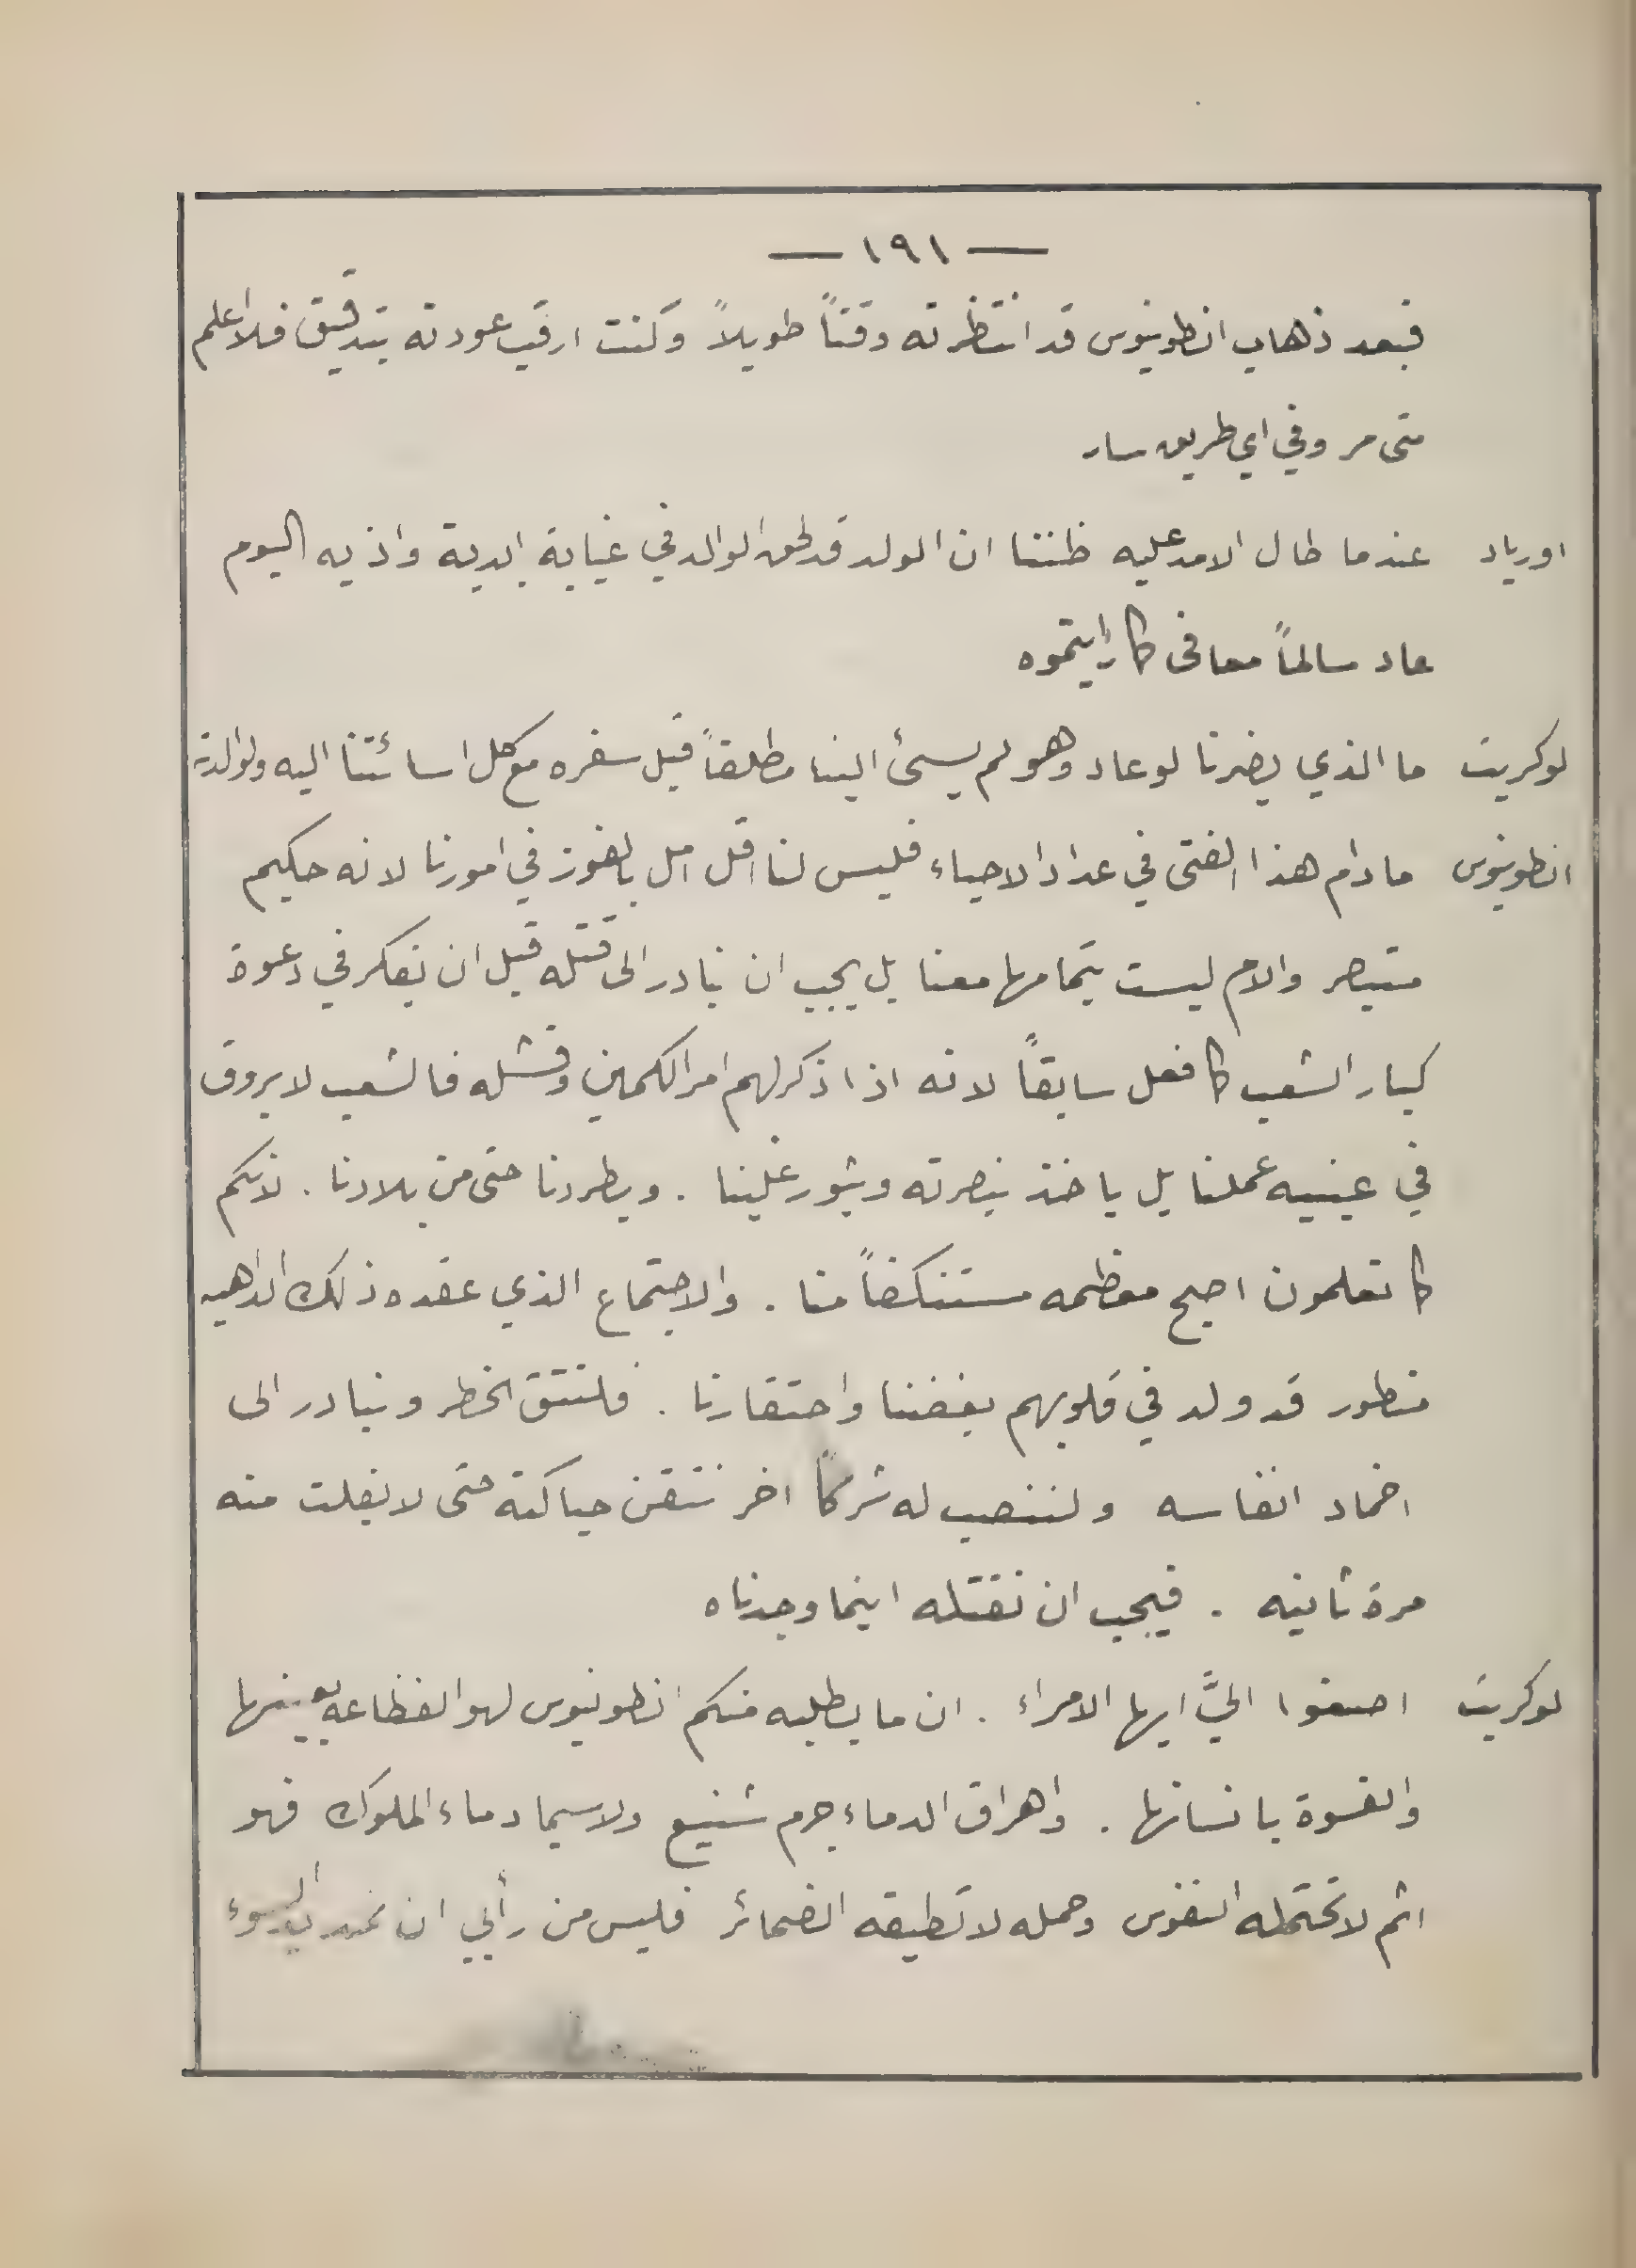 — ١٩١ —
فبعد ذهاب انطونيوس قد انتظرته وقتاً طويلاً وكنت ارقب عودته بتدقيق فلا اعلم
متى مر وفي اي طريق سار
اورياد عندما طال الامد عليه ظننا ان الولد قد لحق الوالد في غياية الابدية واذ به اليوم
عاد سالماً معافى كما رايتموه
لوكريت ما الذي يضرنا لو عاد وهو لم يسئ الينا مطلقاً قبل سفره مع كل اسائتنا اليه ولوالدته
انطونيوس ما دام هذا الفتى في عداد الاحياء فليس لنا اقل امل بالفوز في امورنا لانه حكيم
متبصر والام ليست بتمامها معنا بل يجب ان نبادر الى قتله قبل ان يفكر في دعوة
كبار الشعب كما فعل سابقاً لانه اذا ذكر لهم امر الكمين وفشله فالشعب لا يروق
في عينيه عملنا بل ياخذ بنصرته ويثور علينا . ويطردنا حتى من بلادنا . لانكم
كما تعلمون اصبح معظمه مستنكفاً منا . والاجتماع الذي عقده ذلك الداهيه
منطور قد ولد في قلوبهم بغضنا واحتقارنا . فلنتق الخطر ونبادر الى
اخماد انفاسه ولننصب له شركاً اخر نتقن حياكته حتى لا يفلت منه
مرة ثانيه . فيجب ان نقتله اينما وجدناه
لوكريت اصغوا اليَّ ايها الامراء . ان ما يطلبه منكم انطونيوس لهو الفظاعه بعينها
والقسوة بانسانها . واهراق الدماء جرم شنيع ولاسيما دماء الملوك فهو
اثم لا تحتمله النفوس وحمله لا تطيقه الضمائر فليس من رأيي ان